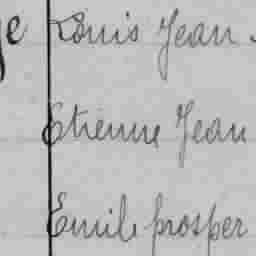 Louis Jean
Etienne Jean
Emile prosper